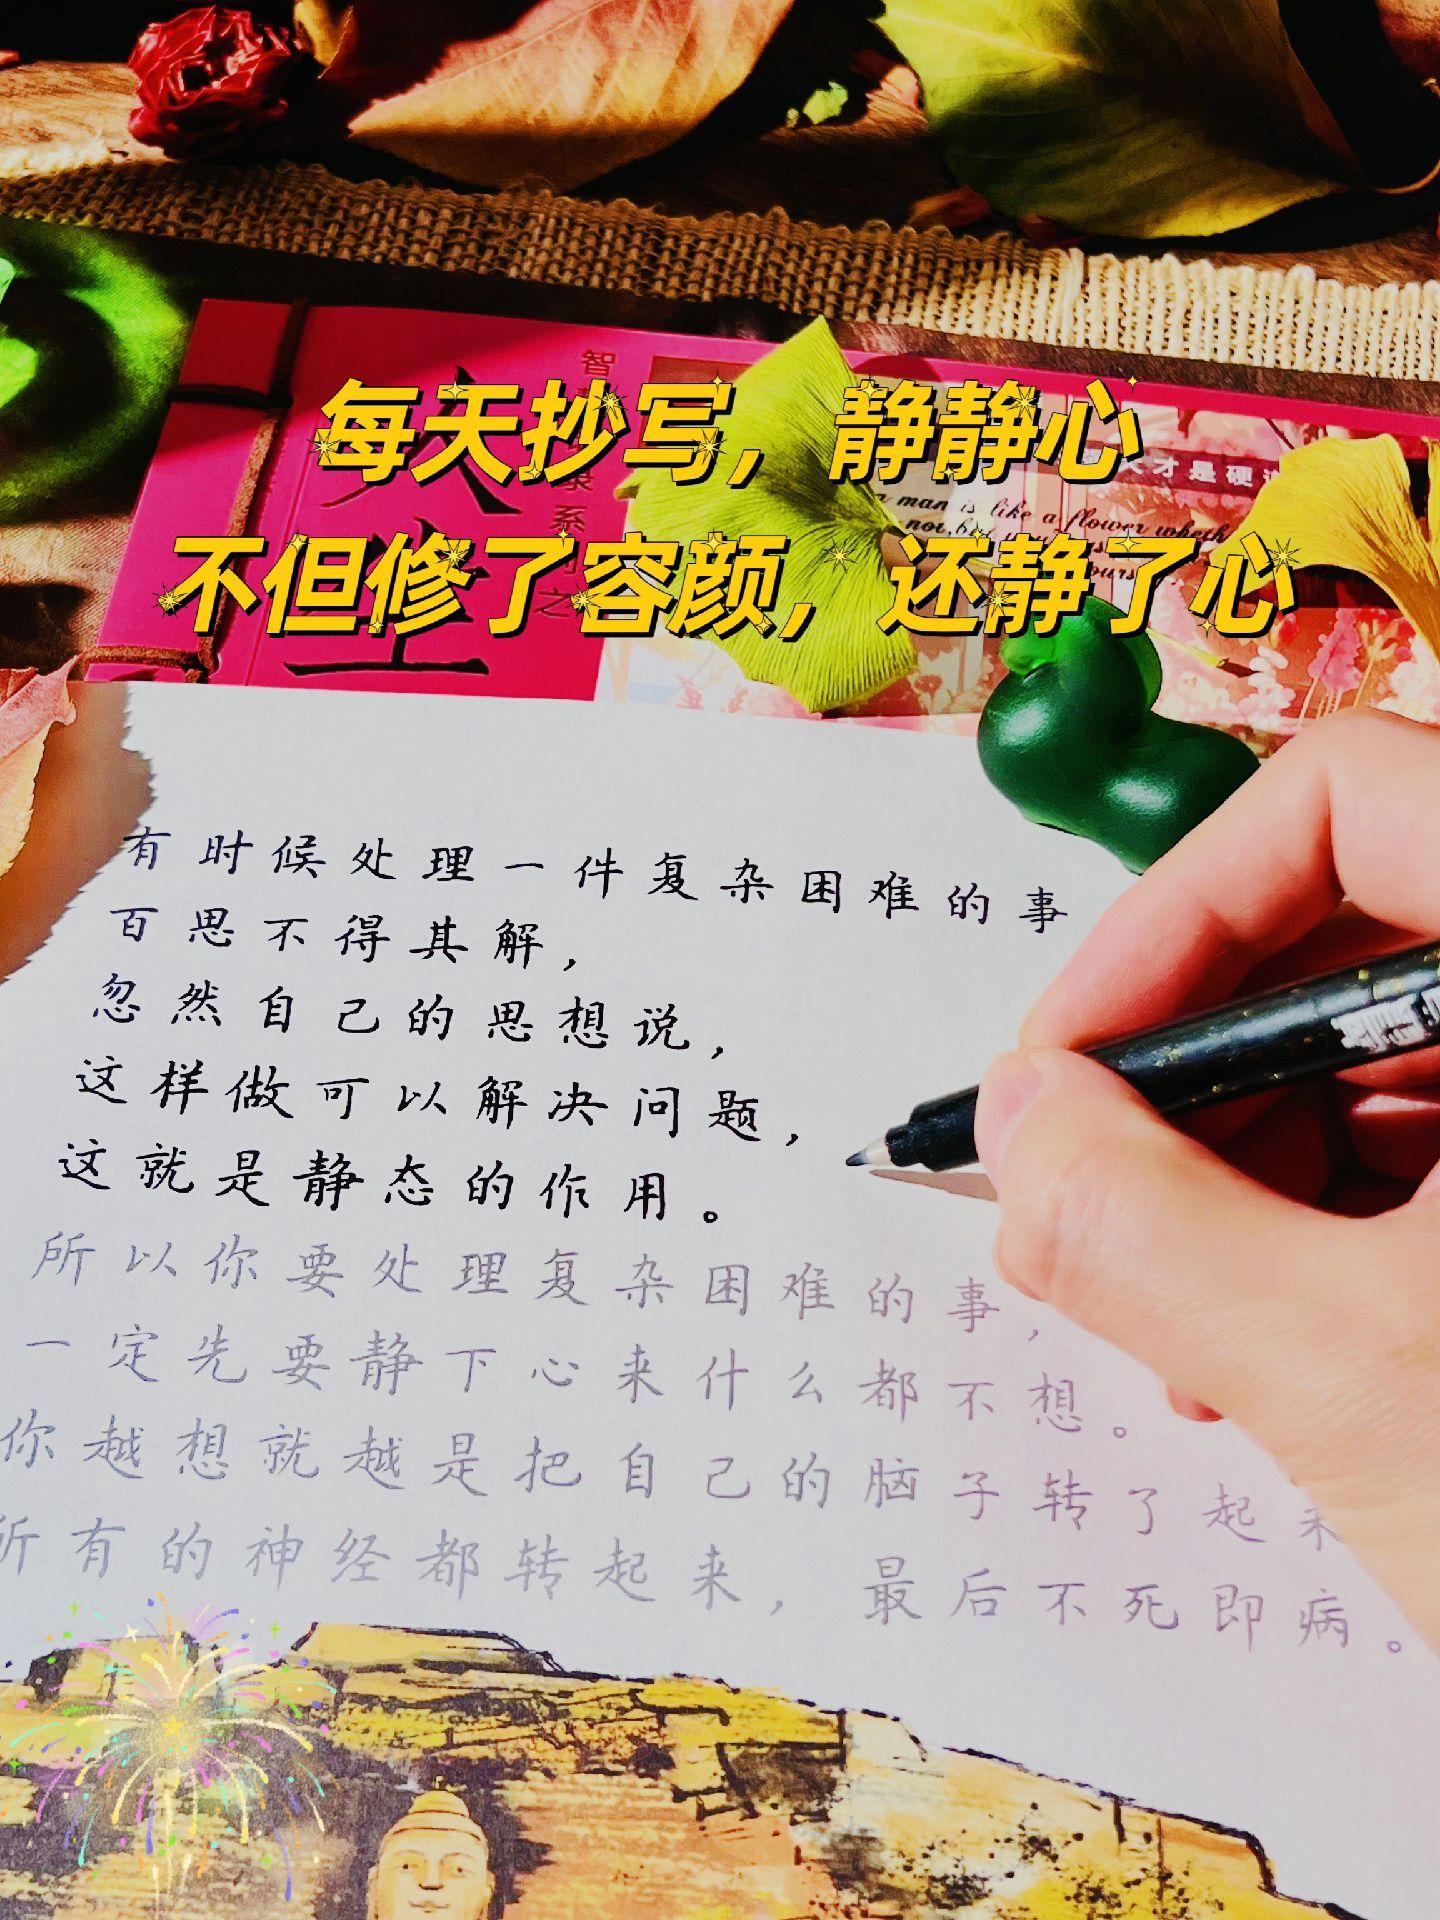 每天抄写，静静心
不但修了容颜，还静了心
才是硬
man is like a flower
有时候处理一件复杂困难的事
百思不得其解，
忽然自己的思想说，
这样做可以解决问题，
这就是静态的作用。
所以你要处理复杂困难的事，
一定先要静下心来什么都不想。
你越想就越是把自己的脑子转了起来
所有的神经都转起来，最后不死即病。